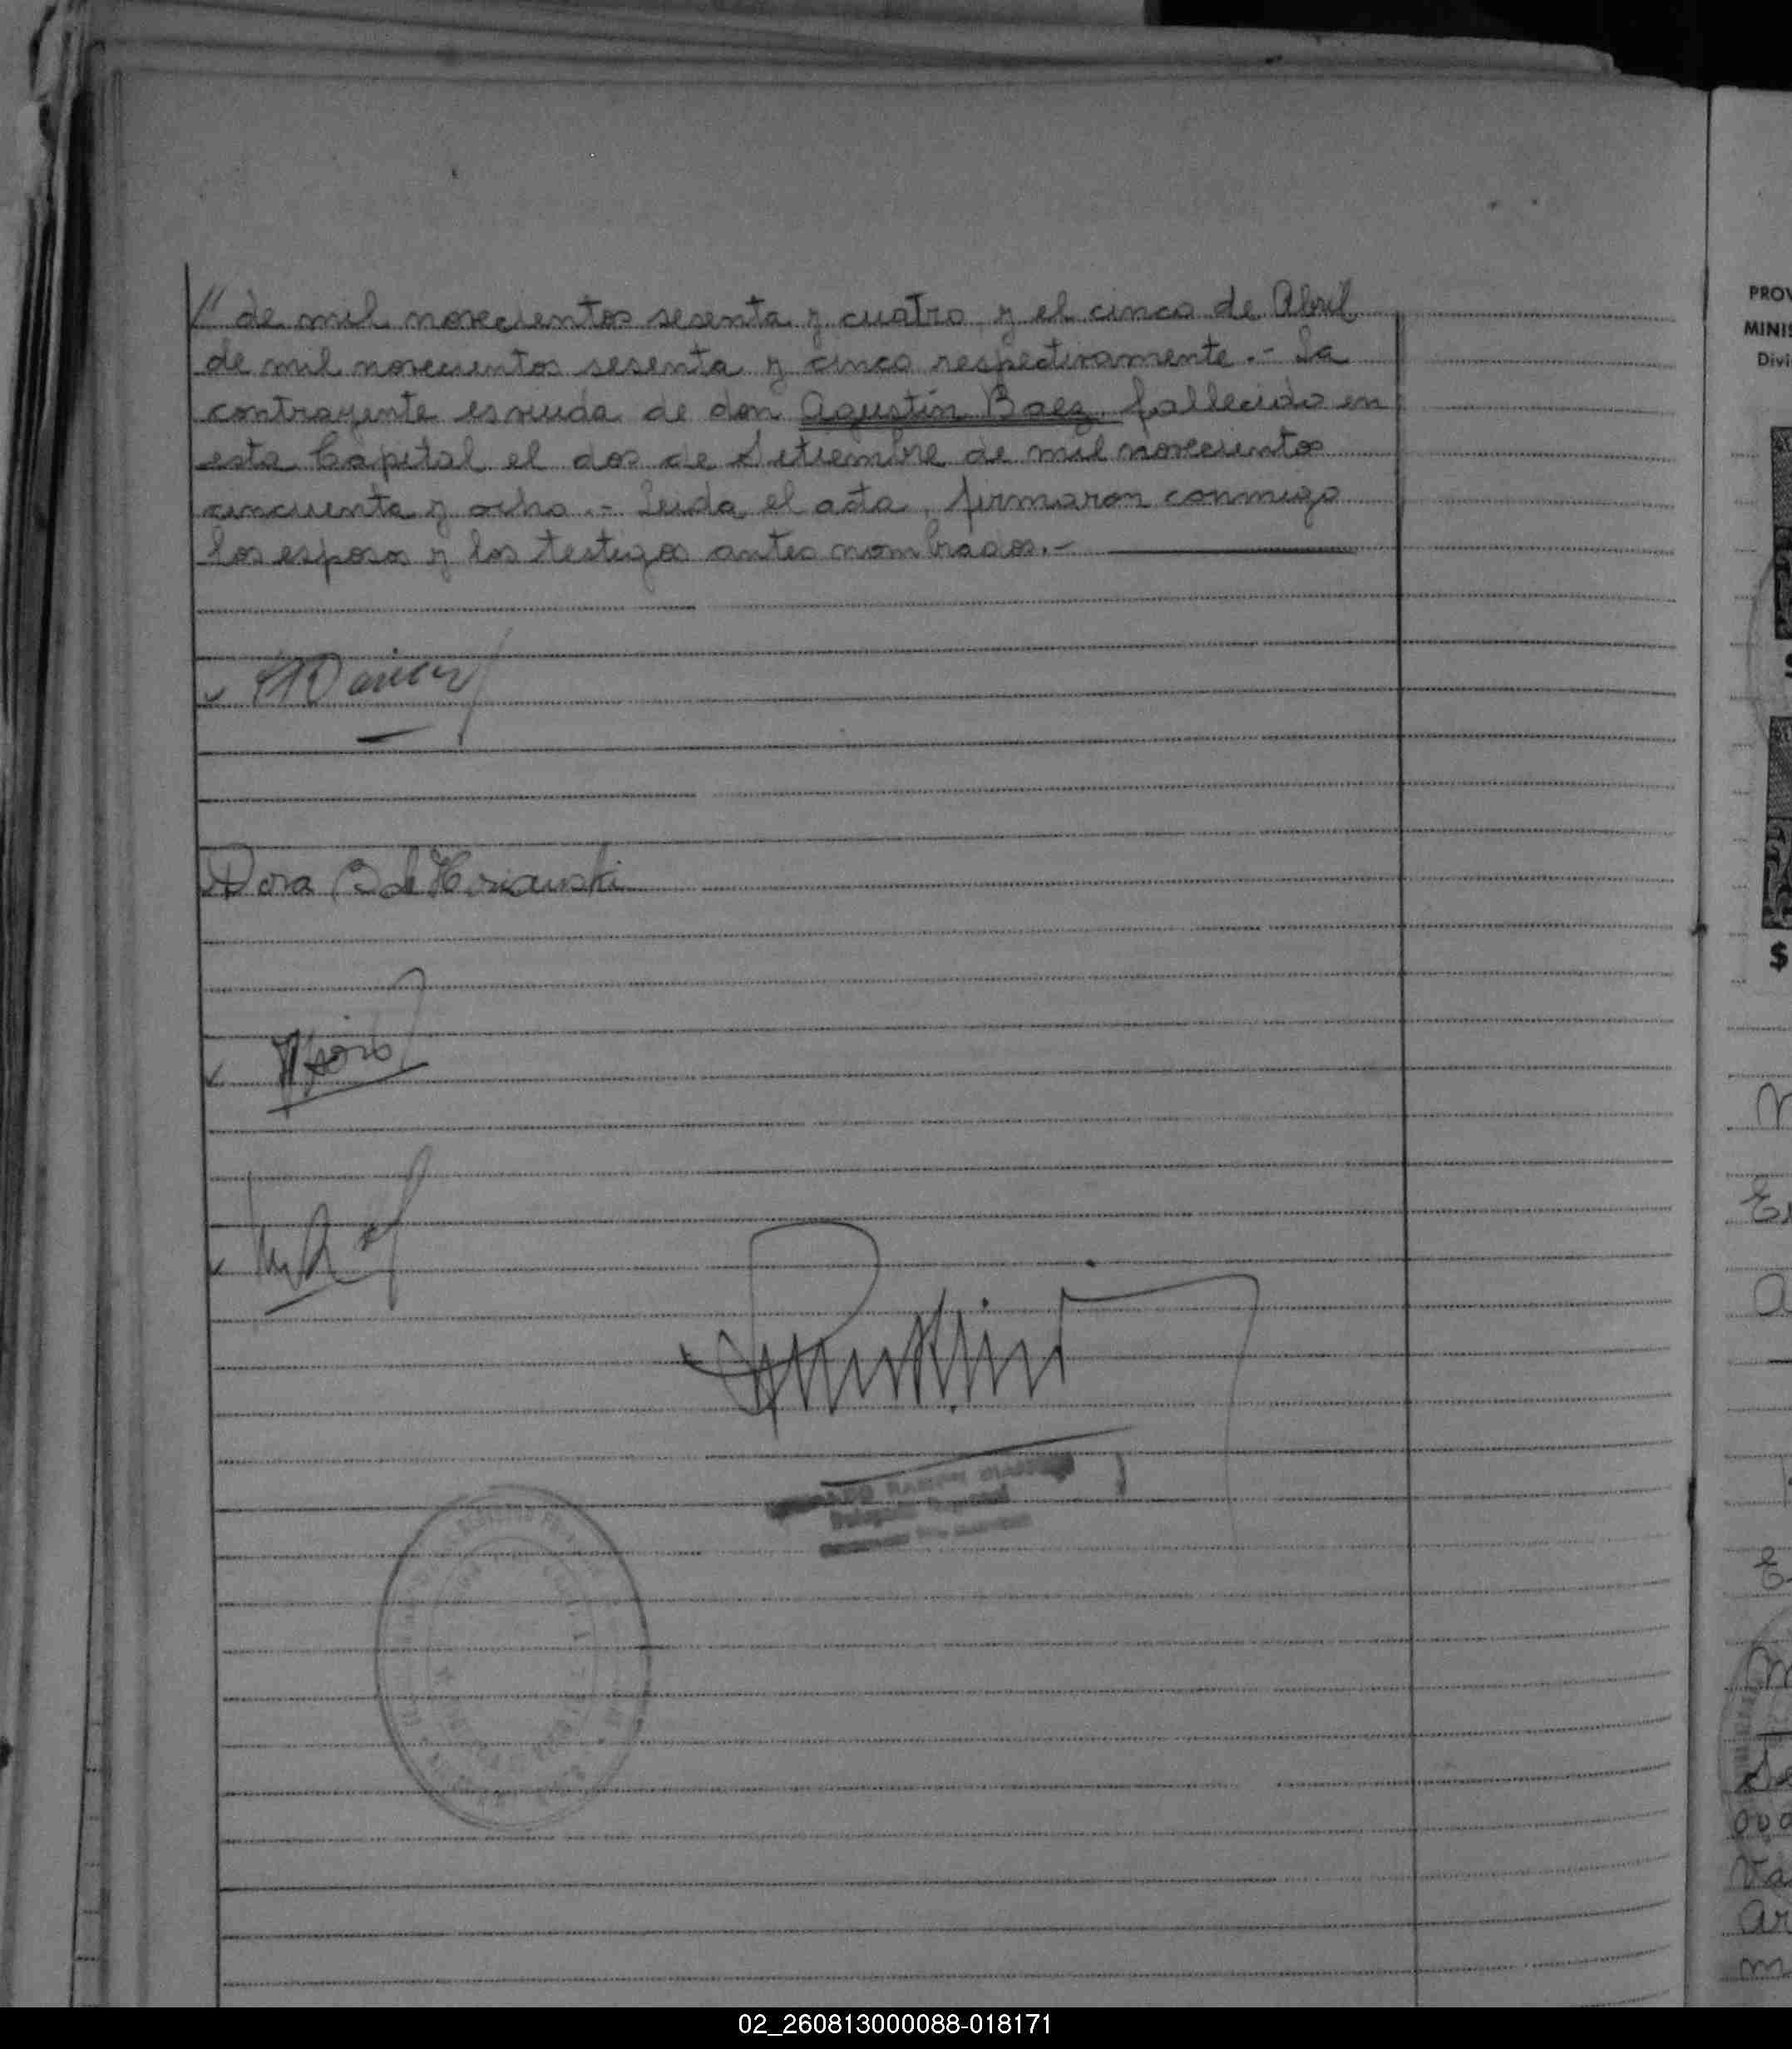 // de mil novecientos sesenta y cuatro y el cinco de Abril
de mil novecientos sesenta y cinco respectivamente.- La
contrayente es viuda de don Agustín Baez, fallecido en
esta Capital el dos de Setiembre de mil novecientos
cincuenta y ocho.- Leida el acta, firmaron conmigo
los esposos y los testigos antes nombrados.-
Dora B de
PROV
MINIS
Divi
$
02_260813000088-018171